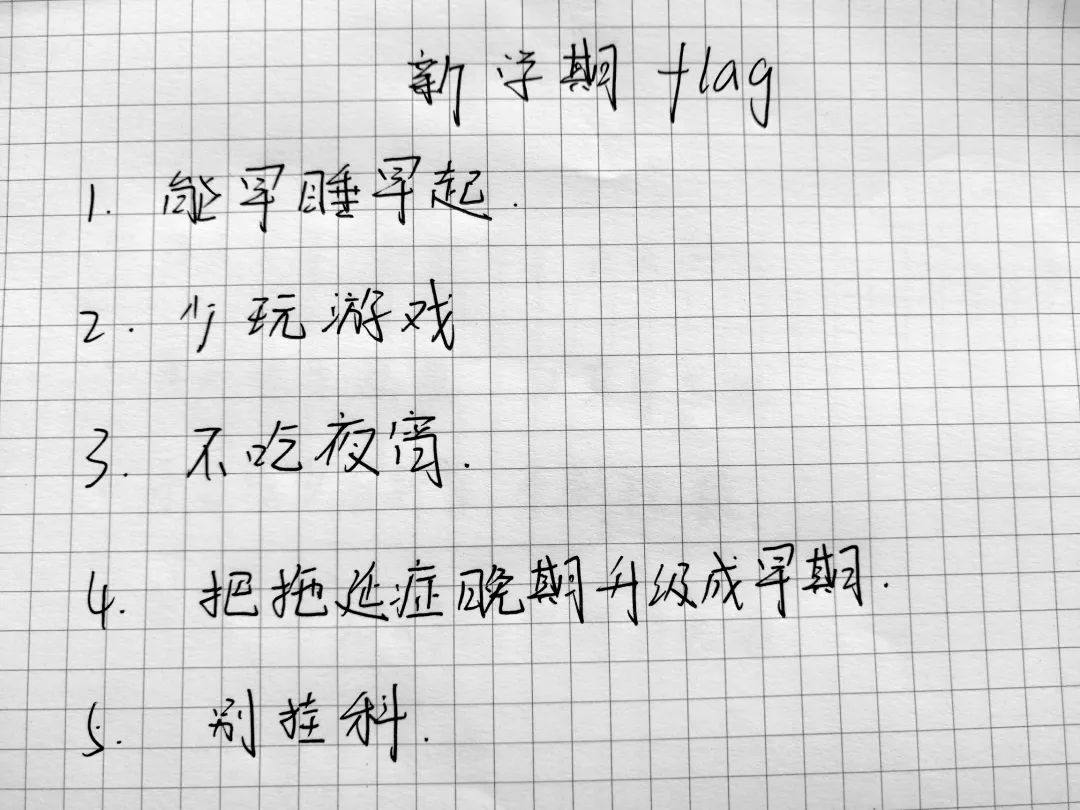 新学期 flag
1. 能早睡早起.
2. 少玩游戏
3. 不吃夜宵.
4. 把拖延症晚期升级成早期.
5. 别挂科.